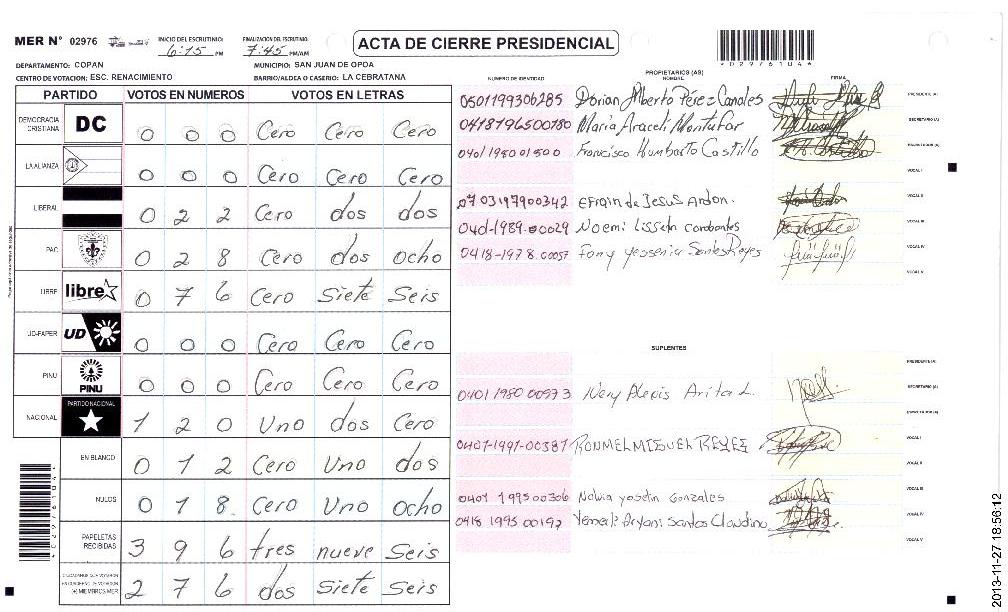 MER N° 02976
INICIO DEL ESCRUTINIO: 6:15 PM
FINALIZACIÓN DEL ESCRUTINIO: 7:45 PM/AM
ACTA DE CIERRE PRESIDENCIAL
029761044
DEPARTAMENTO: COPAN
MUNICIPIO: SAN JUAN DE OPOA
CENTRO DE VOTACION: ESC. RENACIMIENTO
BARRIO/ALDEA O CASERIO: LA CEBRATANA
PARTIDO VOTOS EN NUMEROS VOTOS EN LETRAS
DEMOCRACIA CRISTIANA DC 0 0 0 Cero Cero Cero
LA ALIANZA 0 0 0 Cero Cero Cero
LIBERAL 0 2 2 Cero dos dos
PAC 0 2 8 Cero dos ocho
LIBRE libre 0 7 6 Cero Siete Seis
UD-FAPER UD 0 0 0 Cero Cero Cero
PINU PINU 0 0 0 Cero Cero Cero
NACIONAL PARTIDO NACIONAL 1 2 0 Uno dos Cero
EN BLANCO 0 1 2 Cero Uno dos
NULOS 0 1 8 Cero Uno ocho
PAPELETAS RECIBIDAS 3 9 6 tres nueve Seis
CIUDADANOS QUE VOTARON EN CUADERNO DE VOTACION (+) MIEMBROS MER 2 7 6 dos Siete Seis
029761044
NÚMERO DE IDENTIDAD
PROPIETARIOS (AS)
NOMBRE
FIRMA
0501199306285 Dorian Alberto Pérez Canales PRESIDENTE (A)
0418196500180 Maria Araceli Montufar SECRETARIO (A)
0401195001500 Francisco Humberto Castillo ESCRUTADOR (A)
VOCAL I
0703197900342 Efrain de Jesus Ardon. VOCAL II
0401-1989-00029 Noemi Lisseth VOCAL III
0418-1978.00057 Fany Yessenia Santos Reyes VOCAL IV
VOCAL V
SUPLENTES
PRESIDENTE (A)
0401 1980 00973 Nery Alexis Arita L. SECRETARIO (A)
ESCRUTADOR (A)
0401-1991-00387 RONMEL MIGUEL REYES VOCAL I
VOCAL II
0401 1995 00306 Nolvia yosdin Gonzales VOCAL III
0418 1995 00192 Santos Claudino VOCAL IV
VOCAL V
2013-11-27 18:56:12